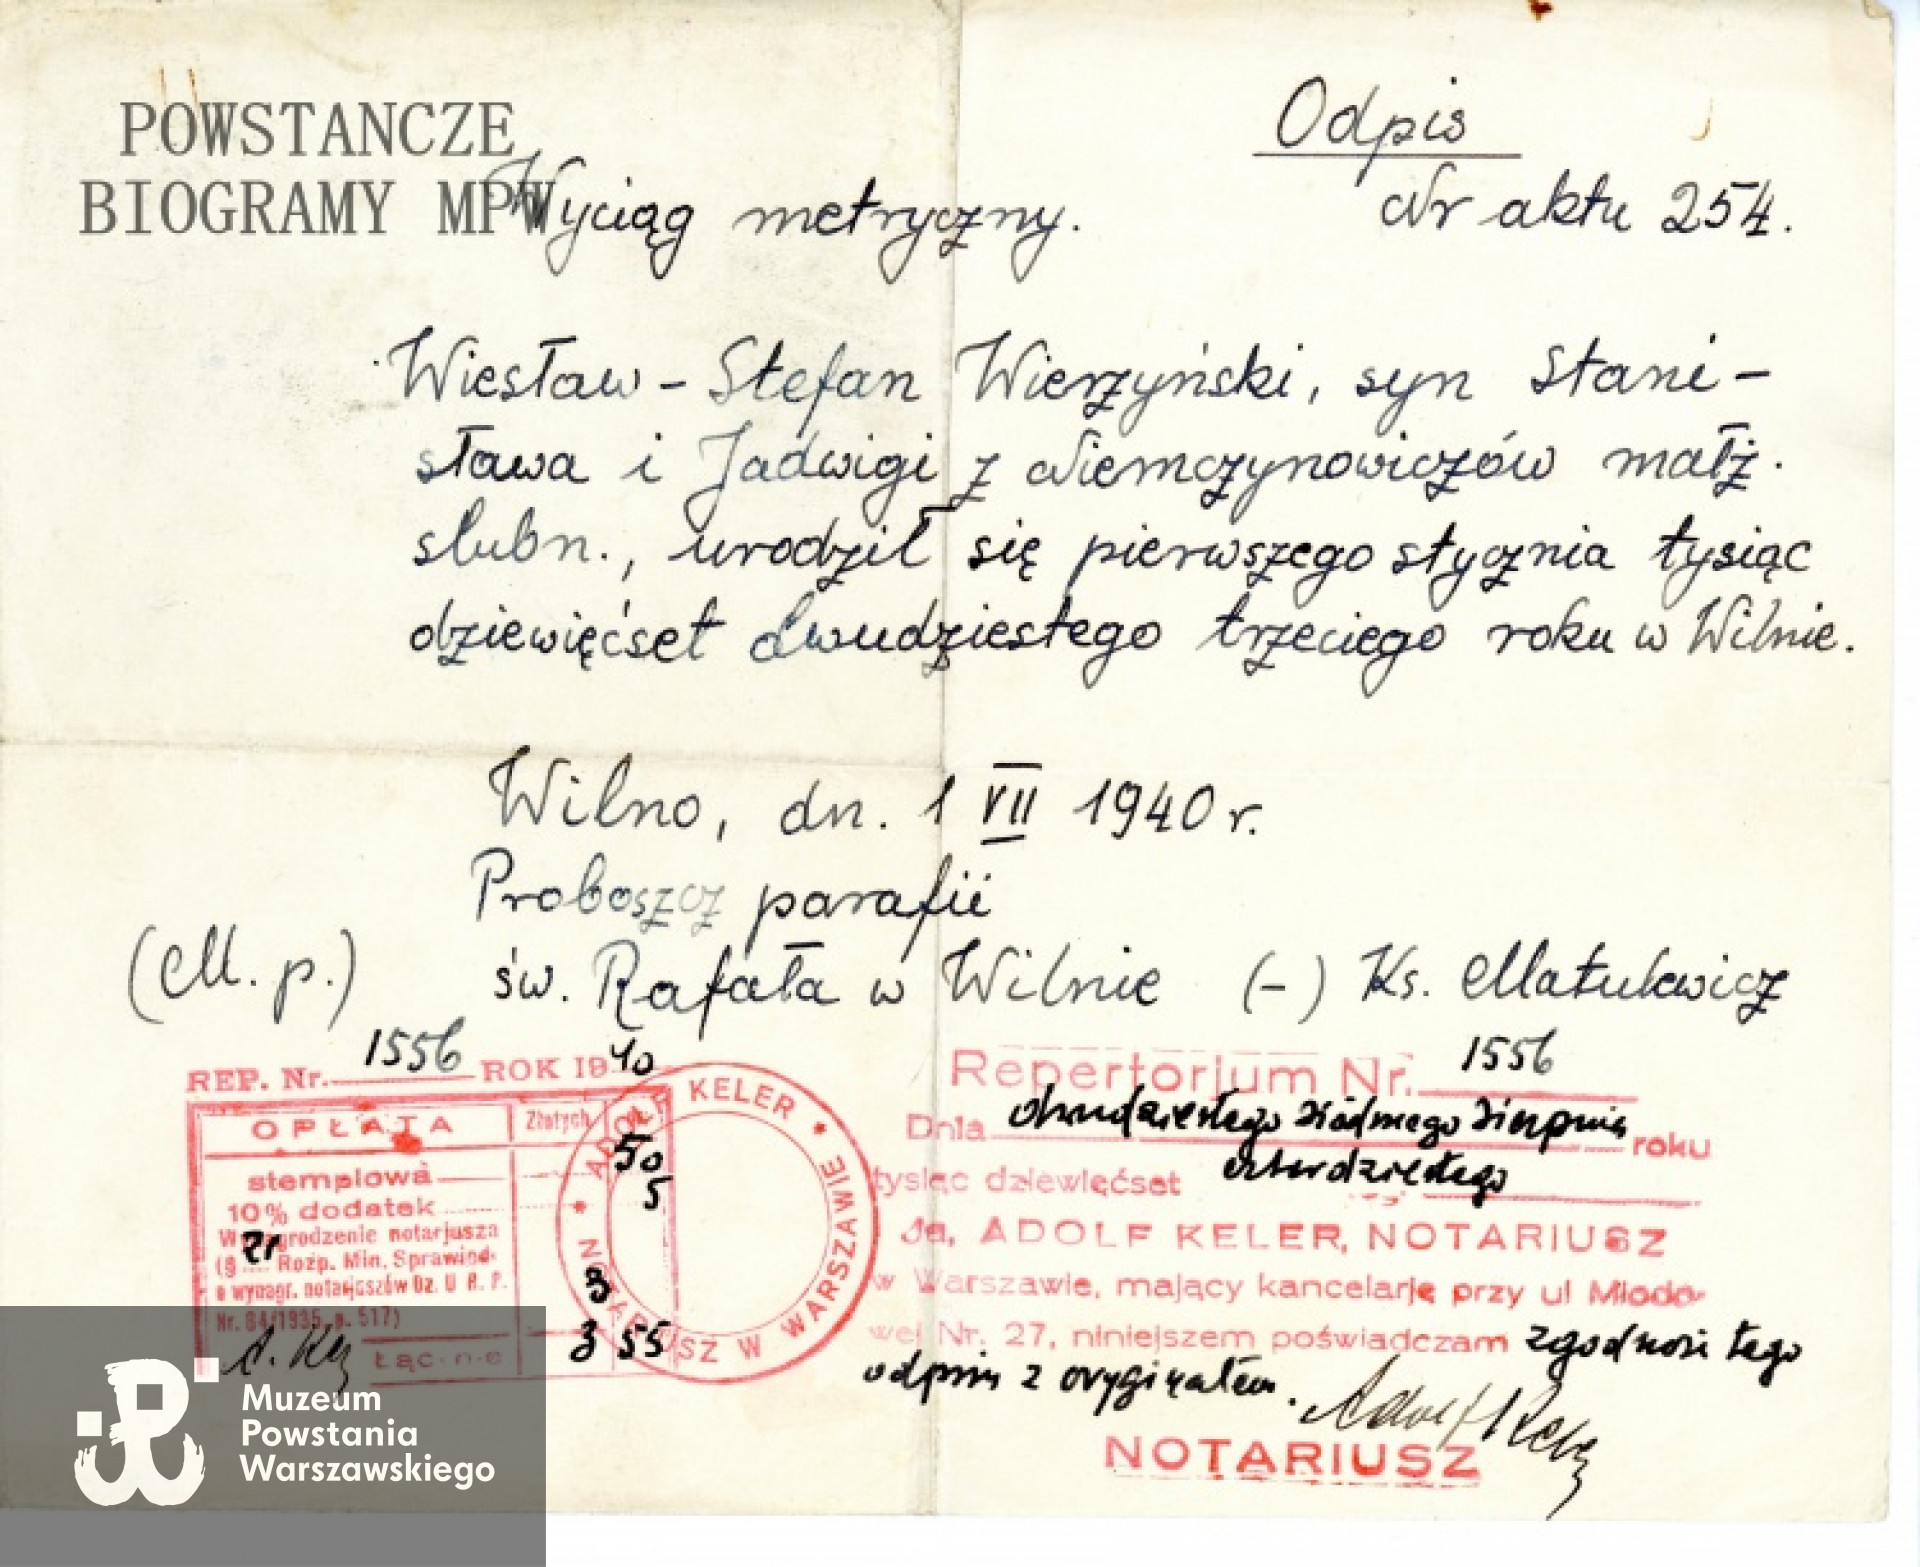 POWSTANCZE
BIOGRAMY MPW
Odpis
Wyciąg metryczny.
Nr aktu 254.
Wiesław - Stefan Wierzyński, syn Stani-
sława i Jadwigi z Niemczynowiczów małż.
slubn., urodził się pierwszego stycznia tysiąc
dziewięćset dwudziestego trzeciego roku w Wilnie.
Wilno, dn. 1 VII 1940 r.
Proboszcz parafii
(M. p.)
św. Rafała w Wilnie (-) Ks. Matulewicz
REP. Nr. 1556 ROK 1940
OPŁATA Złotych
stemplowa 50
10% dodatek 5
Wynagrodzenie notarjusza
(§ 21 Rozp. Min. Sprawied.
o wynagr. notarjuszów Dz. U R. P. 3
Nr. 84/1935, p. 517)
A. Kel Łącznie 3 55
* ADOLF KELER * NOTARIUSZ W WARSZAWIE
Repertorjum Nr. 1556
Dnia dwudziestego siódmego sierpnia roku
tysiąc dziewięćset czterdziestego
Ja, ADOLF KELER, NOTARIUSZ
w Warszawie, mający kancelarję przy ul Miodo-
wej Nr. 27, niniejszem poświadczam zgodność tego
odpisu z oryginałem.
Adolf Keler
NOTARIUSZ
Muzeum
Powstania
Warszawskiego